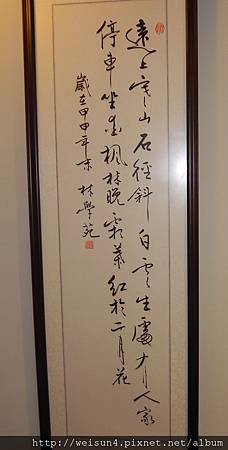 遠上寒山石徑斜白雲生處有人家
停車坐愛楓林晚霜葉紅於二月花
歲在甲申年末 林學苑
http://weisun4.pixnet.net/album